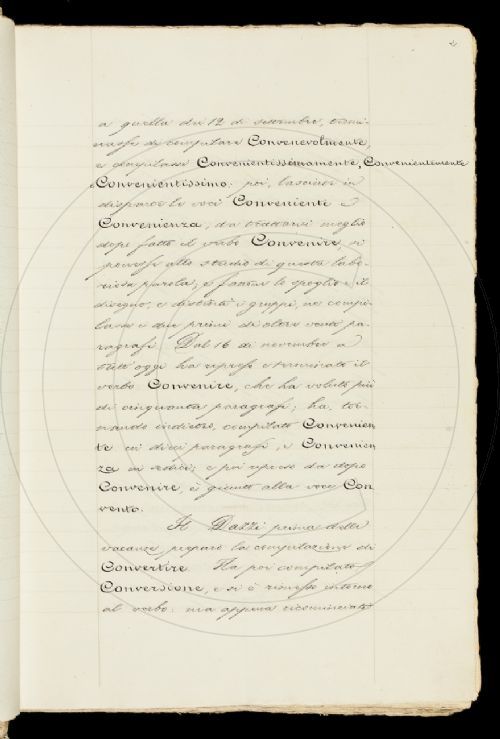 a quella dei 12 di settembre, termi-
nasse di compilare Convenevolmente,
e compilasse Convenientissimamente, Convenientemente
Convenientissimo: poi, lasciate in
disparte le voci Conveniente e
Convenienza, da trattarsi meglio
dopo fatto il verbo Convenire, si
ponesse allo studio di questa labo-
riosa parola; e fattone lo spoglio e il
disegno, e distinti i gruppi, ne compi-
lasse i due primi di oltre venti pa-
ragrafi. Dal 16 di novembre a
tutt'oggi ha ripreso e terminato il
verbo Convenire, che ha voluto più
di cinquanta paragrafi; ha, tor-
nando indietro, compilato Convenien
te in dieci paragrafi, e Convenien
za in sedici; e poi ripreso da dopo
Convenire, è giunto alla voce Con
vento.
Il Dazzi prima delle
vacanze, preparò la compilazione di
Convertire. Ha poi compilato
Conversione, e si è rimesso intorno
al verbo: ma appena ricominciato